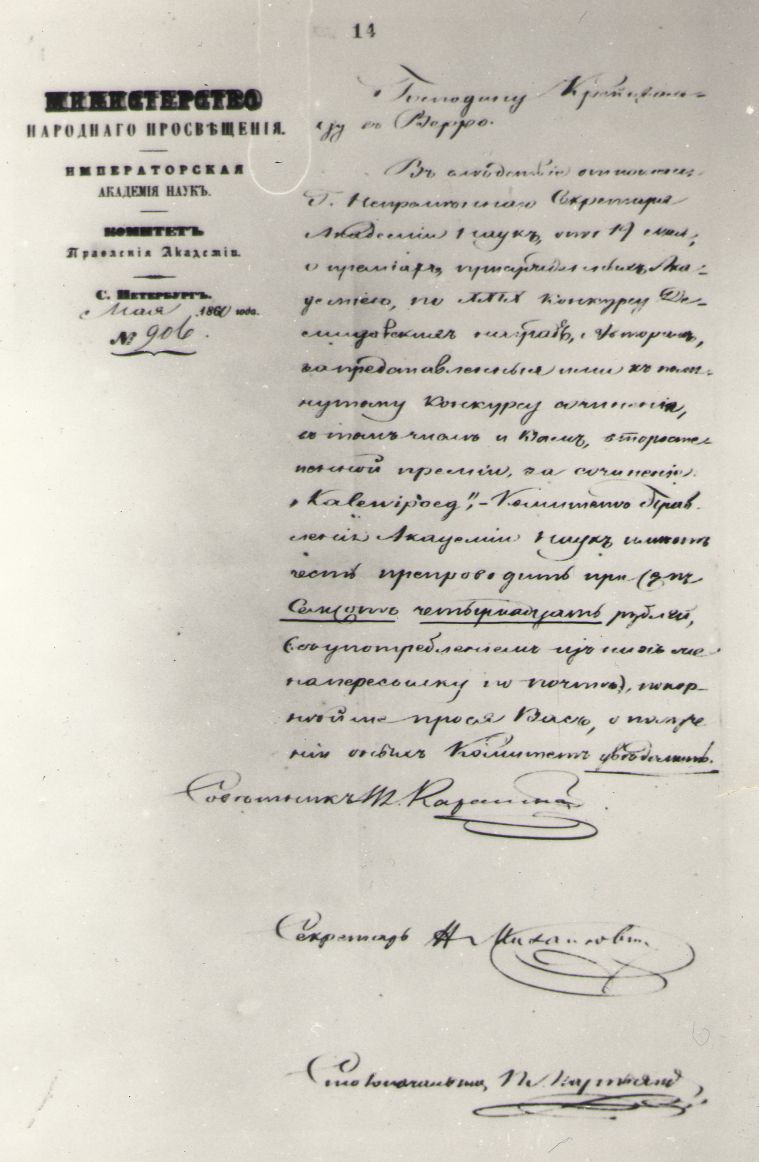 14
МИНИСТЕРСТВО
НАРОДНАГО ПРОСВѢЩЕНІЯ.
ИМПЕРАТОРСКАЯ
АКАДЕМІЯ НАУКЪ.
КОМИТЕТЪ
Правленія Академіи.
С. ПЕТЕРБУРГЪ.
Мая 1860 года.
№ 906.
Господину Крейцваль-
ду въ Верро.
Въ слѣдствіе отношенія
Г. Непремѣннаго Секретаря
Академіи Наукъ, отъ 19 мая,
о преміяхъ, присужденныхъ Ака-
деміею, по XXIX конкурсу Де-
мидовскихъ наградъ,
за представленныя ими къ помя-
нутому конкурсу сочиненія,
въ томъ числѣ и Вамъ, второсте-
пенной преміи, за сочиненіе:
„Kalewipoeg“, – Комитетъ Прав-
ленія Академіи Наукъ имѣетъ
честь препроводить при семъ
Семьсотъ четырнадцать рублей,
(съ употребленіемъ изъ нихъ же
на пересылку по почтѣ), покор-
нѣйше прося Васъ, о получе-
ніи оныхъ Комитетъ увѣдомить.
Совѣтникъ
Секретарь Н.
Столоначальникъ